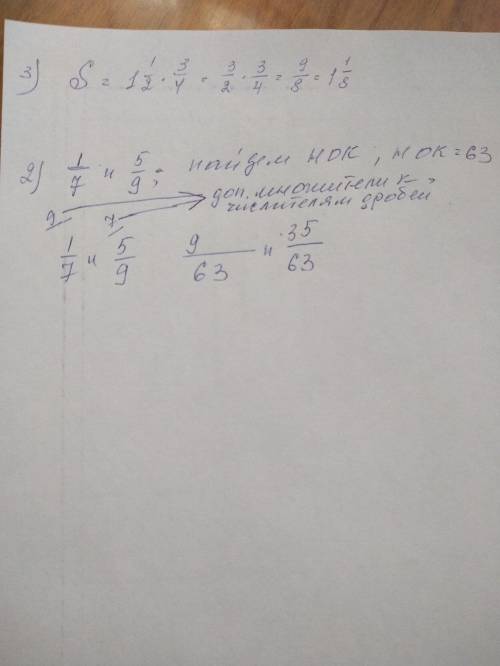 3) S = 1 1/2 · 3/4 = 3/2 · 3/4 = 9/8 = 1 1/8
2) 1/7 и 5/9; найдем НОК, НОК = 63
9 7 доп. множители к
числителям дробей
1/7 и 5/9 9/63 и 35/63